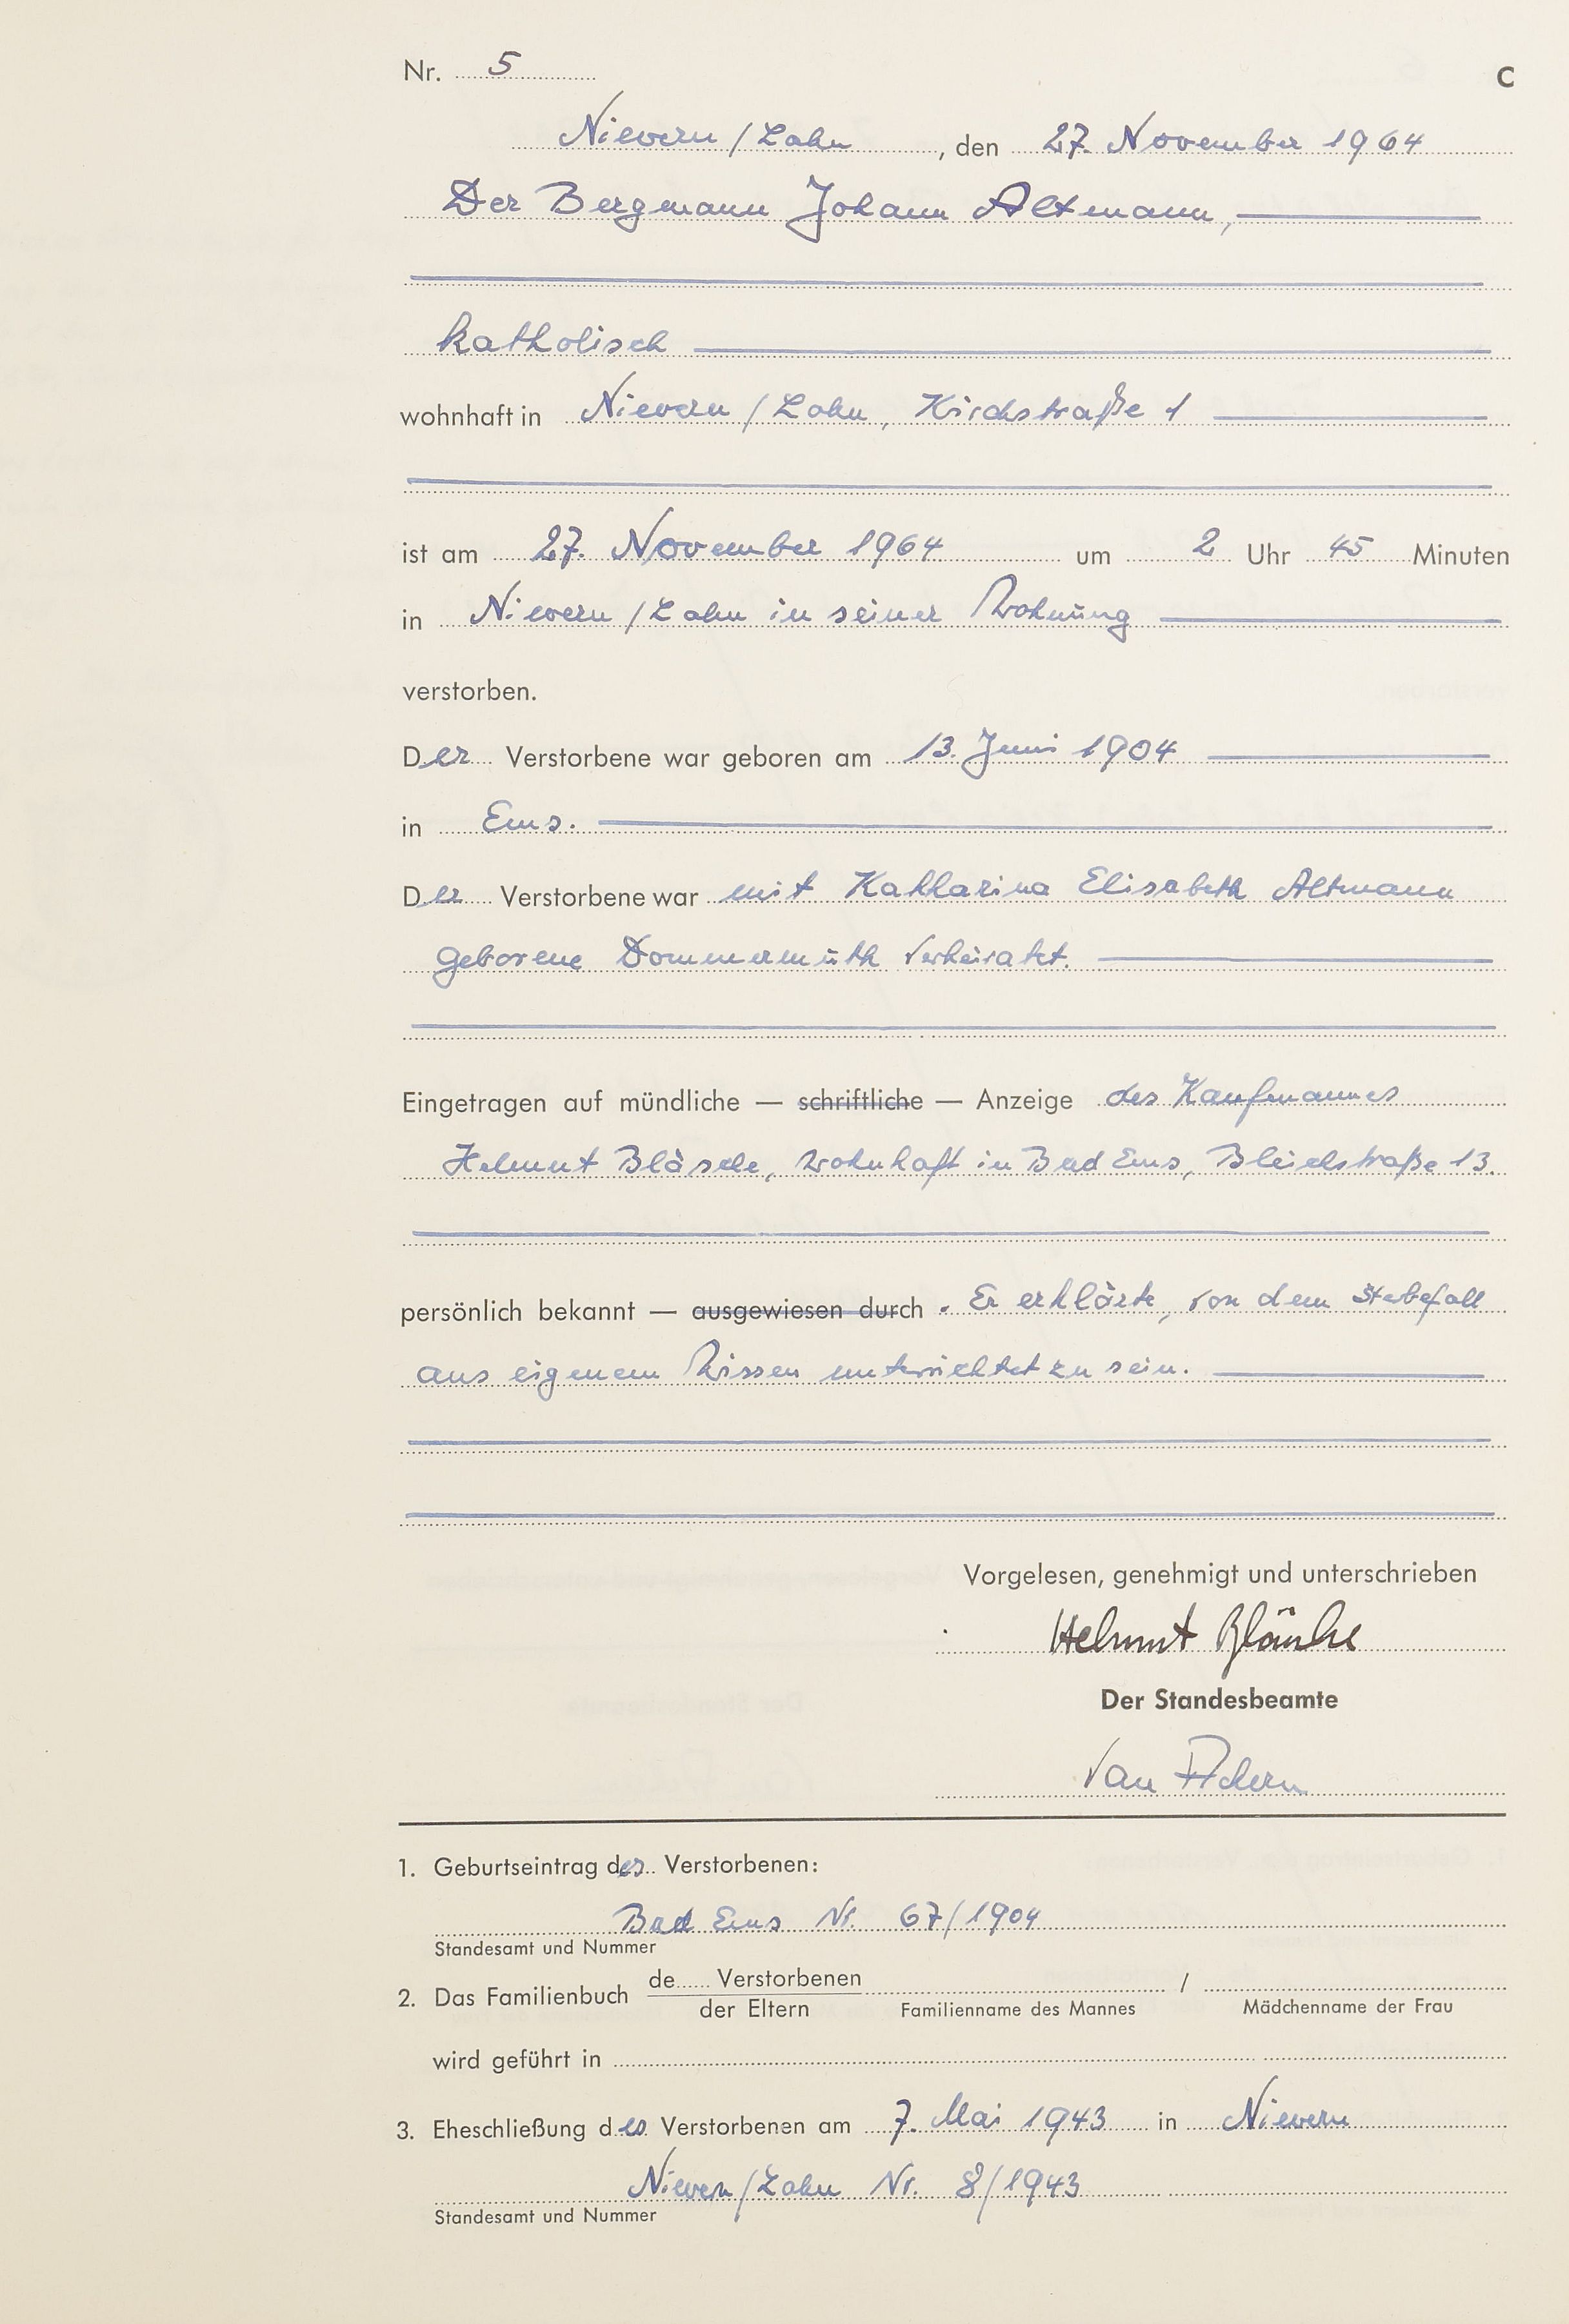 Nr. 5
C
Nievern/Lahn, den 27. November 1964
Der Bergmann Johann Altmann,
katholisch
wohnhaft in Nievern/Lahn, Kirchstraße 1
ist am 27. November 1964 um 2 Uhr 45 Minuten
in Nievern/Lahn in seiner Wohnung
verstorben.
Der Verstorbene war geboren am 13. Juni 1904
in Ems.
Der Verstorbene war mit Katharina Elisabeth Altmann
geborene Dommermuth verheiratet.
Eingetragen auf mündliche — schriftliche — Anzeige des Kaufmannes
Helmut wohnhaft in Bad Ems, Bleichstraße 13.
persönlich bekannt — ausgewiesen durch . Er erklärte, von dem Sterbefall
aus eigenem Wissen unterrichtet zu sein.
Vorgelesen, genehmigt und unterschrieben
Helmut
Der Standesbeamte
Van
1. Geburtseintrag des Verstorbenen:
Bad Ems Nr. 67/1904
Standesamt und Nummer
2. Das Familienbuch de Verstorbenen /
der Eltern Familienname des Mannes Mädchenname der Frau
wird geführt in
3. Eheschließung des Verstorbenen am 7. Mai 1943 in Nievern
Nievern/Lahn Nr. 8/1943
Standesamt und Nummer